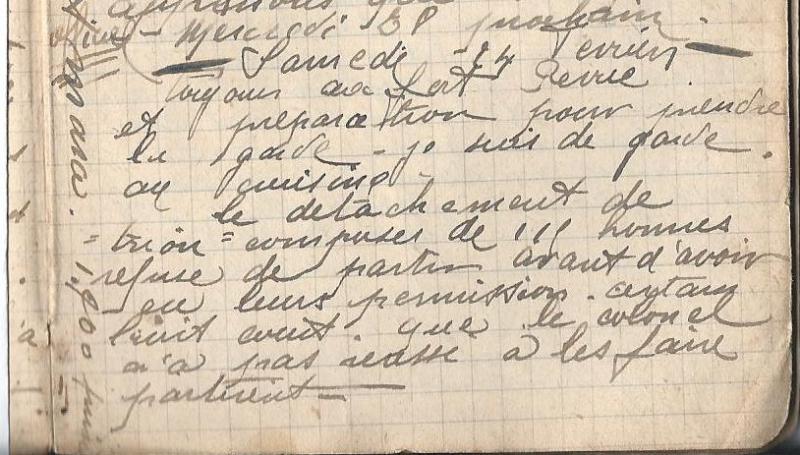 Mercredi prochain.
Samedi 14 Fevrier
Toujours au fort Revue
et preparation pour prendre
la garde - je suis de garde
au cuisine -
le detachement de
composer de 111 hommes
refuse de partir avant d'avoir
eu leurs permission. certain
bruit court. que le colonel
n'a pas reussé à les faire
partirent
mara. 1,900